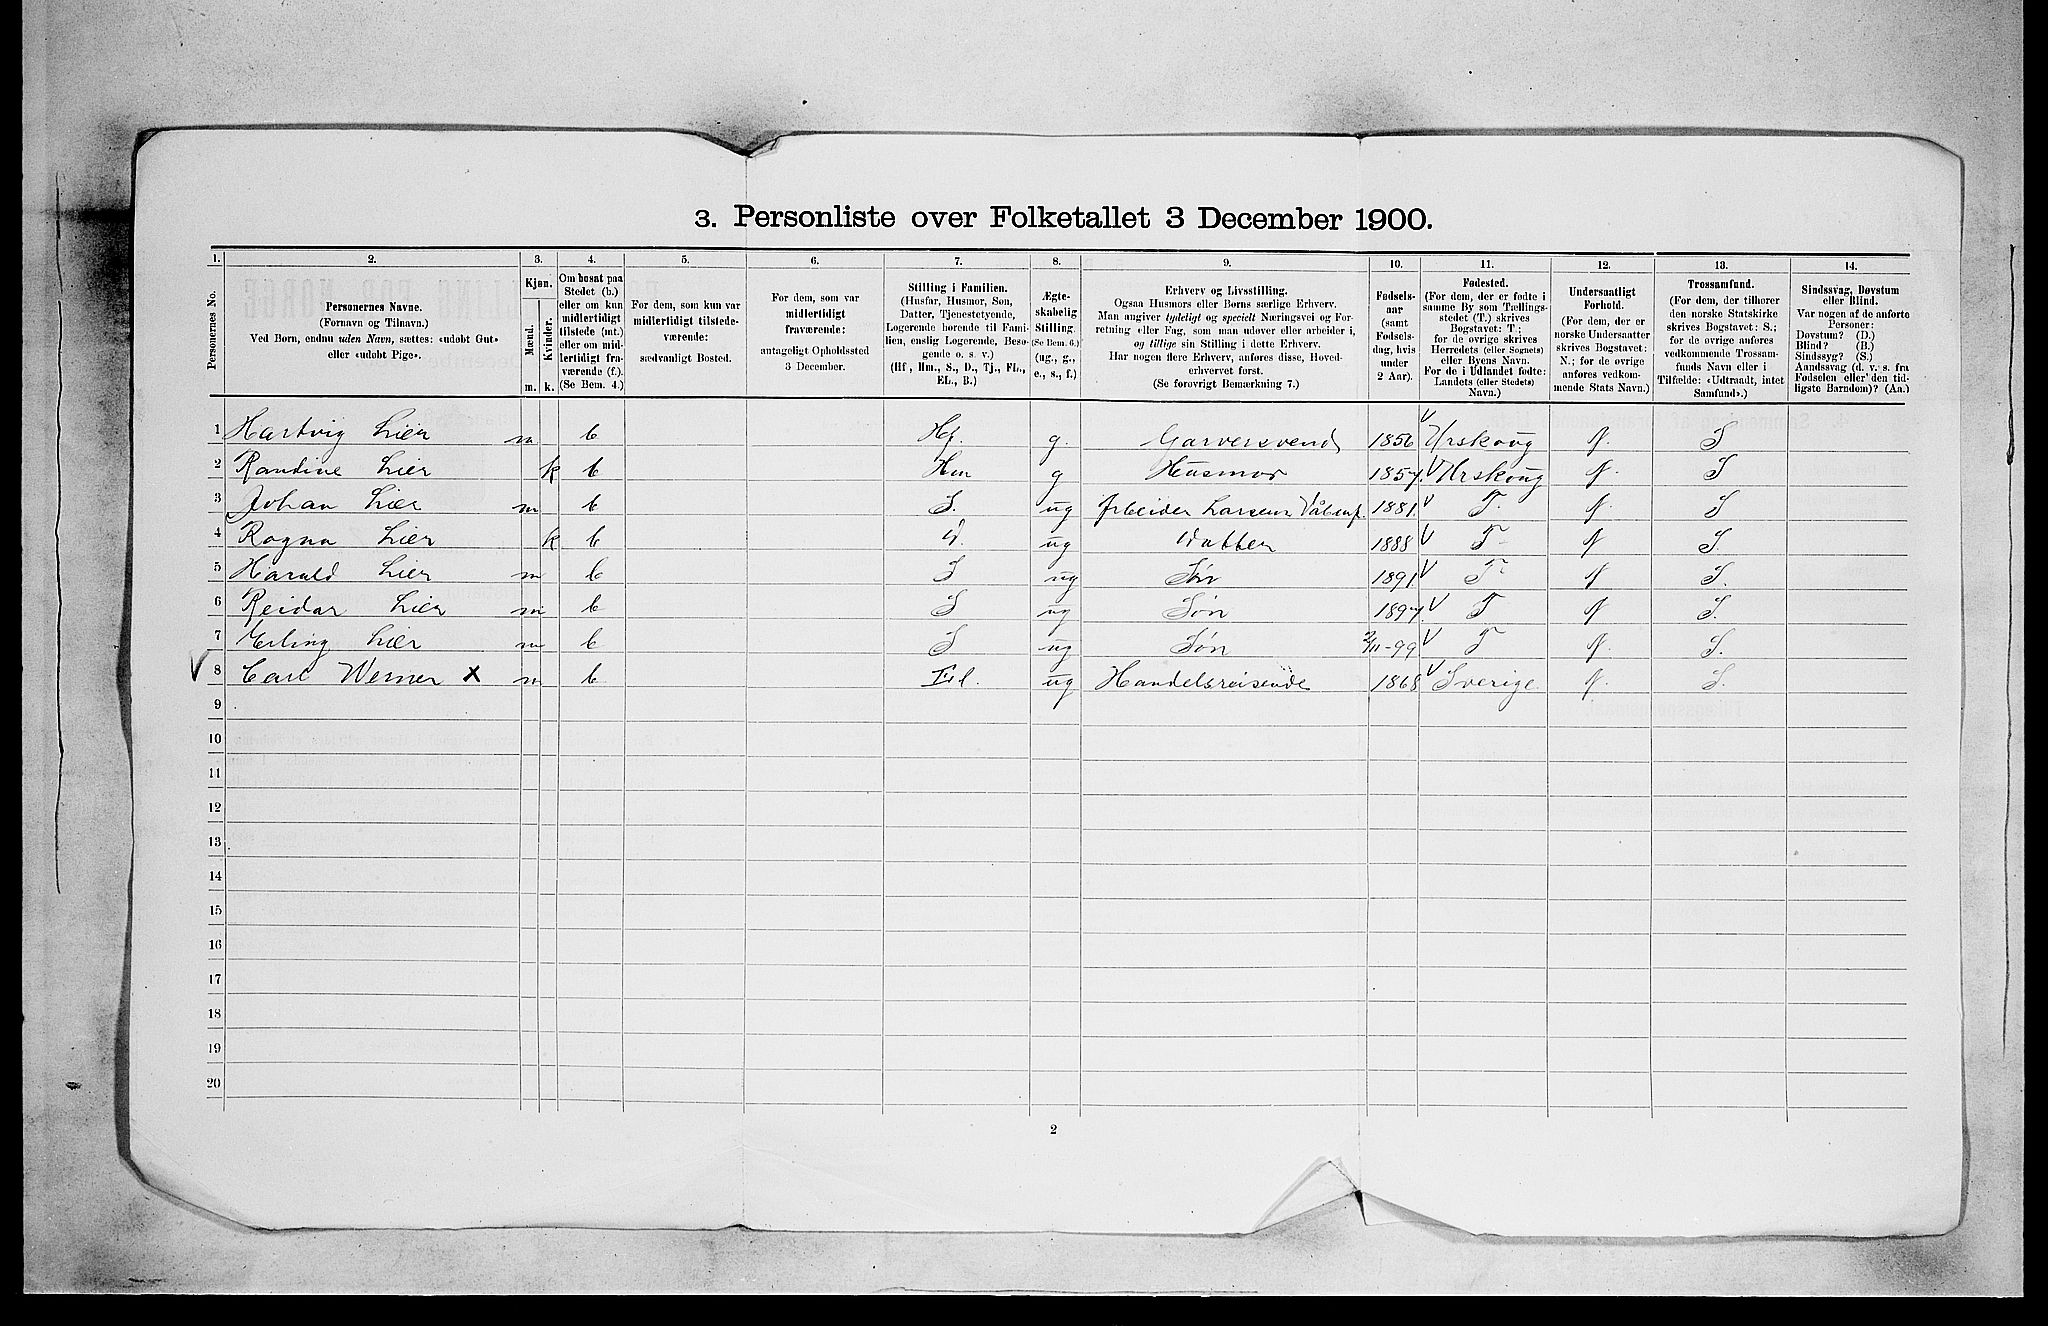 3. Personliste over Folketallet 3 December 1900.
1. 2. 3. 4. 5. 6. 7. 8. 9. 10. 11. 12. 13. 14.
Personernes No.
Personernes Navne.
(Fornavn og Tilnavn.)
Ved Børn, endnu uden Navn, sættes: «udøbt Gut»
eller «udøbt Pige».
Kjøn.
Mænd.
Kvinder.
m. k.
Om bosat paa
Stedet (b.)
eller om kun
midlertidigt
tilstede (mt.)
eller om mid-
lertidigt fra-
værende (f.).
(Se Bem. 4.)
For dem, som kun var
midlertidigt tilstede-
værende:
sædvanligt Bosted.
For dem, som var
midlertidigt
fraværende:
antageligt Opholdssted
3 December.
Stilling i Familien.
(Husfar, Husmor, Søn,
Datter, Tjenestetyende,
Logerende hørende til Fami-
lien, enslig Logerende, Besø-
gende o. s. v.)
(Hf., Hm., S., D., Tj., FL.,
EL., B.)
Ægte-
skabelig
Stilling.
(Se Bem. 6.)
(ug., g.,
e., s., f.)
Erhverv og Livsstilling.
Ogsaa Husmors eller Børns særlige Erhverv.
Man angiver tydeligt og specielt Næringsvei og For-
retning eller Fag, som man udøver eller arbeider i,
og tillige sin Stilling i dette Erhverv.
Har nogen flere Erhverv, anføres disse, Hoved-
erhvervet først.
(Se forøvrigt Bemærkning 7.)
Fødsels-
aar
(samt
Fødsels-
dag, hvis
under
2 Aar).
Fødested.
(For dem, der er fødte i
samme By som Tællings-
stedet (T.) skrives
Bogstavet: T.;
for de øvrige skrives
Herredets (eller Sognets)
eller Byens Navn.
For de i Udlandet fødte:
Landets (eller Stedets)
Navn.)
Undersaatligt
Forhold.
(For dem, der er
norske Undersaatter
skrives Bogstavet:
N.; for de øvrige
anføres vedkom-
mende Stats Navn.)
Trossamfund.
(For dem, der tilhører
den norske Statskirke
skrives Bogstavet: S.;
for de øvrige anføres
vedkommende Trossam-
funds Navn eller i
Tilfælde: «Udtraadt, intet
Samfund».)
Sindssvag, Døvstum
eller Blind.
Var nogen af de anførte
Personer:
Døvstum? (D.)
Blind? (B.)
Sindssyg? (S.)
Aandssvag (d. v. s. fra
Fødselen eller den tid-
ligste Barndom)? (Aa.)
1 Hartvig Lier m b Hf. g. Garversvend 1856 V Urskoug N. S
2 Randine Lier k b Hm g Husmor 1857. V Urskoug N. S
3 Johan Lier m b S. ug Arbeider Larsens Våbenf. 1881. V T. N. S
4 Ragna Lier k b d. ug datter 1888 V T N S.
5 Harald Lier m b S ug Søn 1891. V T N S.
6 Reidar Lier m b S ug Søn 1897. V T N S.
7 Erling Lier m b S ug Søn 2/11-99 V T N. S.
V 8 Carl Werner X m b El. ug Handelsreisende 1868 V Sverige. N. S.
9
10
11
12
13
14
15
16
17
18
19
20
2